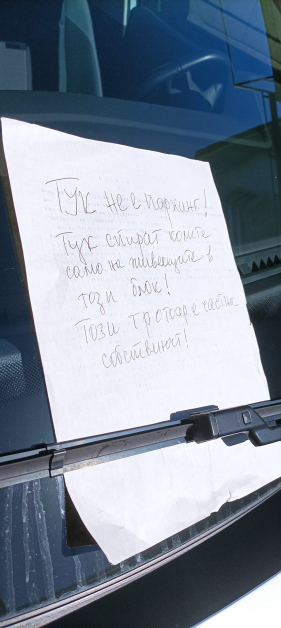 Тук не е паркинг!
Тук спират колите
само на живеещите в
този блок!
Този тротоар е частна
собственост!